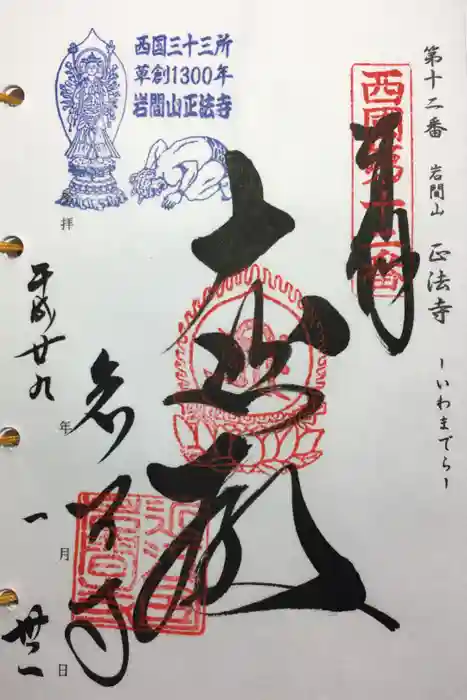 第十二番 岩間山 正法寺 ーいわまでらー
西國第十二番
奉拝
西国三十三所
草創1300年
岩間山正法寺
大悲殿
岩間寺
拝
平成廿九年一月卅一日